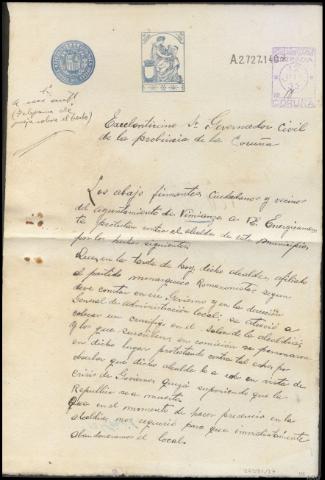 A2727140
CORUÑA
Excelentísimo Sr Governador Civil
de la probincia de la Coruña
Los abajo firmantes ciudadanos y vecinos
del ayuntamiento de Vimianzo a V.E. Energicamen
te protestan contra el alcalde de este municipio
por los hechos siguientes
Que en la tarde de hoy dicho alcalde, afiliado
al partido monarquico Romanonista segun
debe constar en ese Govierno y en la dirección
General de Administración local; se atrevió a
colocar un crucifijo en el Salon de la alcaldia,
y los que suscriben en comisión se personaron
en dicho lugar protestando contra tal echo por
que dicho alcalde lo a echo en vista de
crisis de Govierno Quizá suponiendo que la
Republica se a muerto.
Que en el momento de hacer presencia en la
alcaldia nos requirió para que inmediatamente
abandonaramos el local.